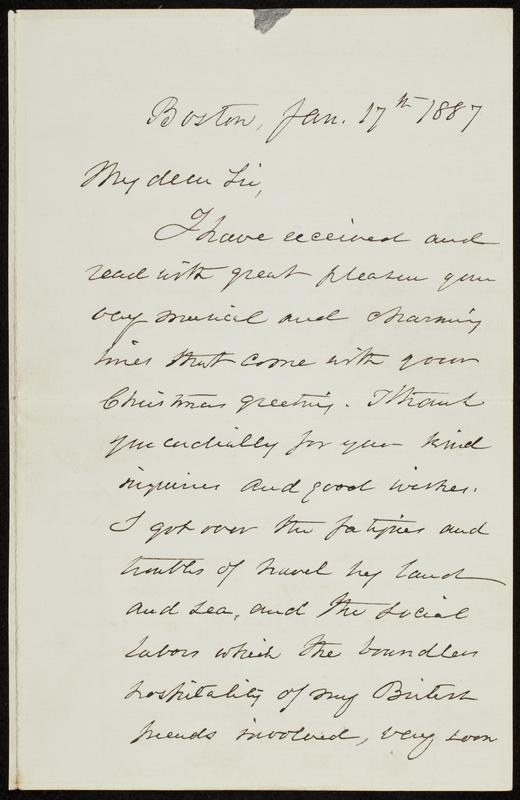 Boston, Jan. 17th 1887
My dear Sir,
I have received and
read with great pleasure your
very musical and charming
lines that come with your
Christmas greeting. I thank
you cordially for your kind
inquiries and good wishes.
I got over the fatigues and
troubles of travel by land
and sea, and the social
labors which the boundless
hospitality of my British
friends involved, very soon